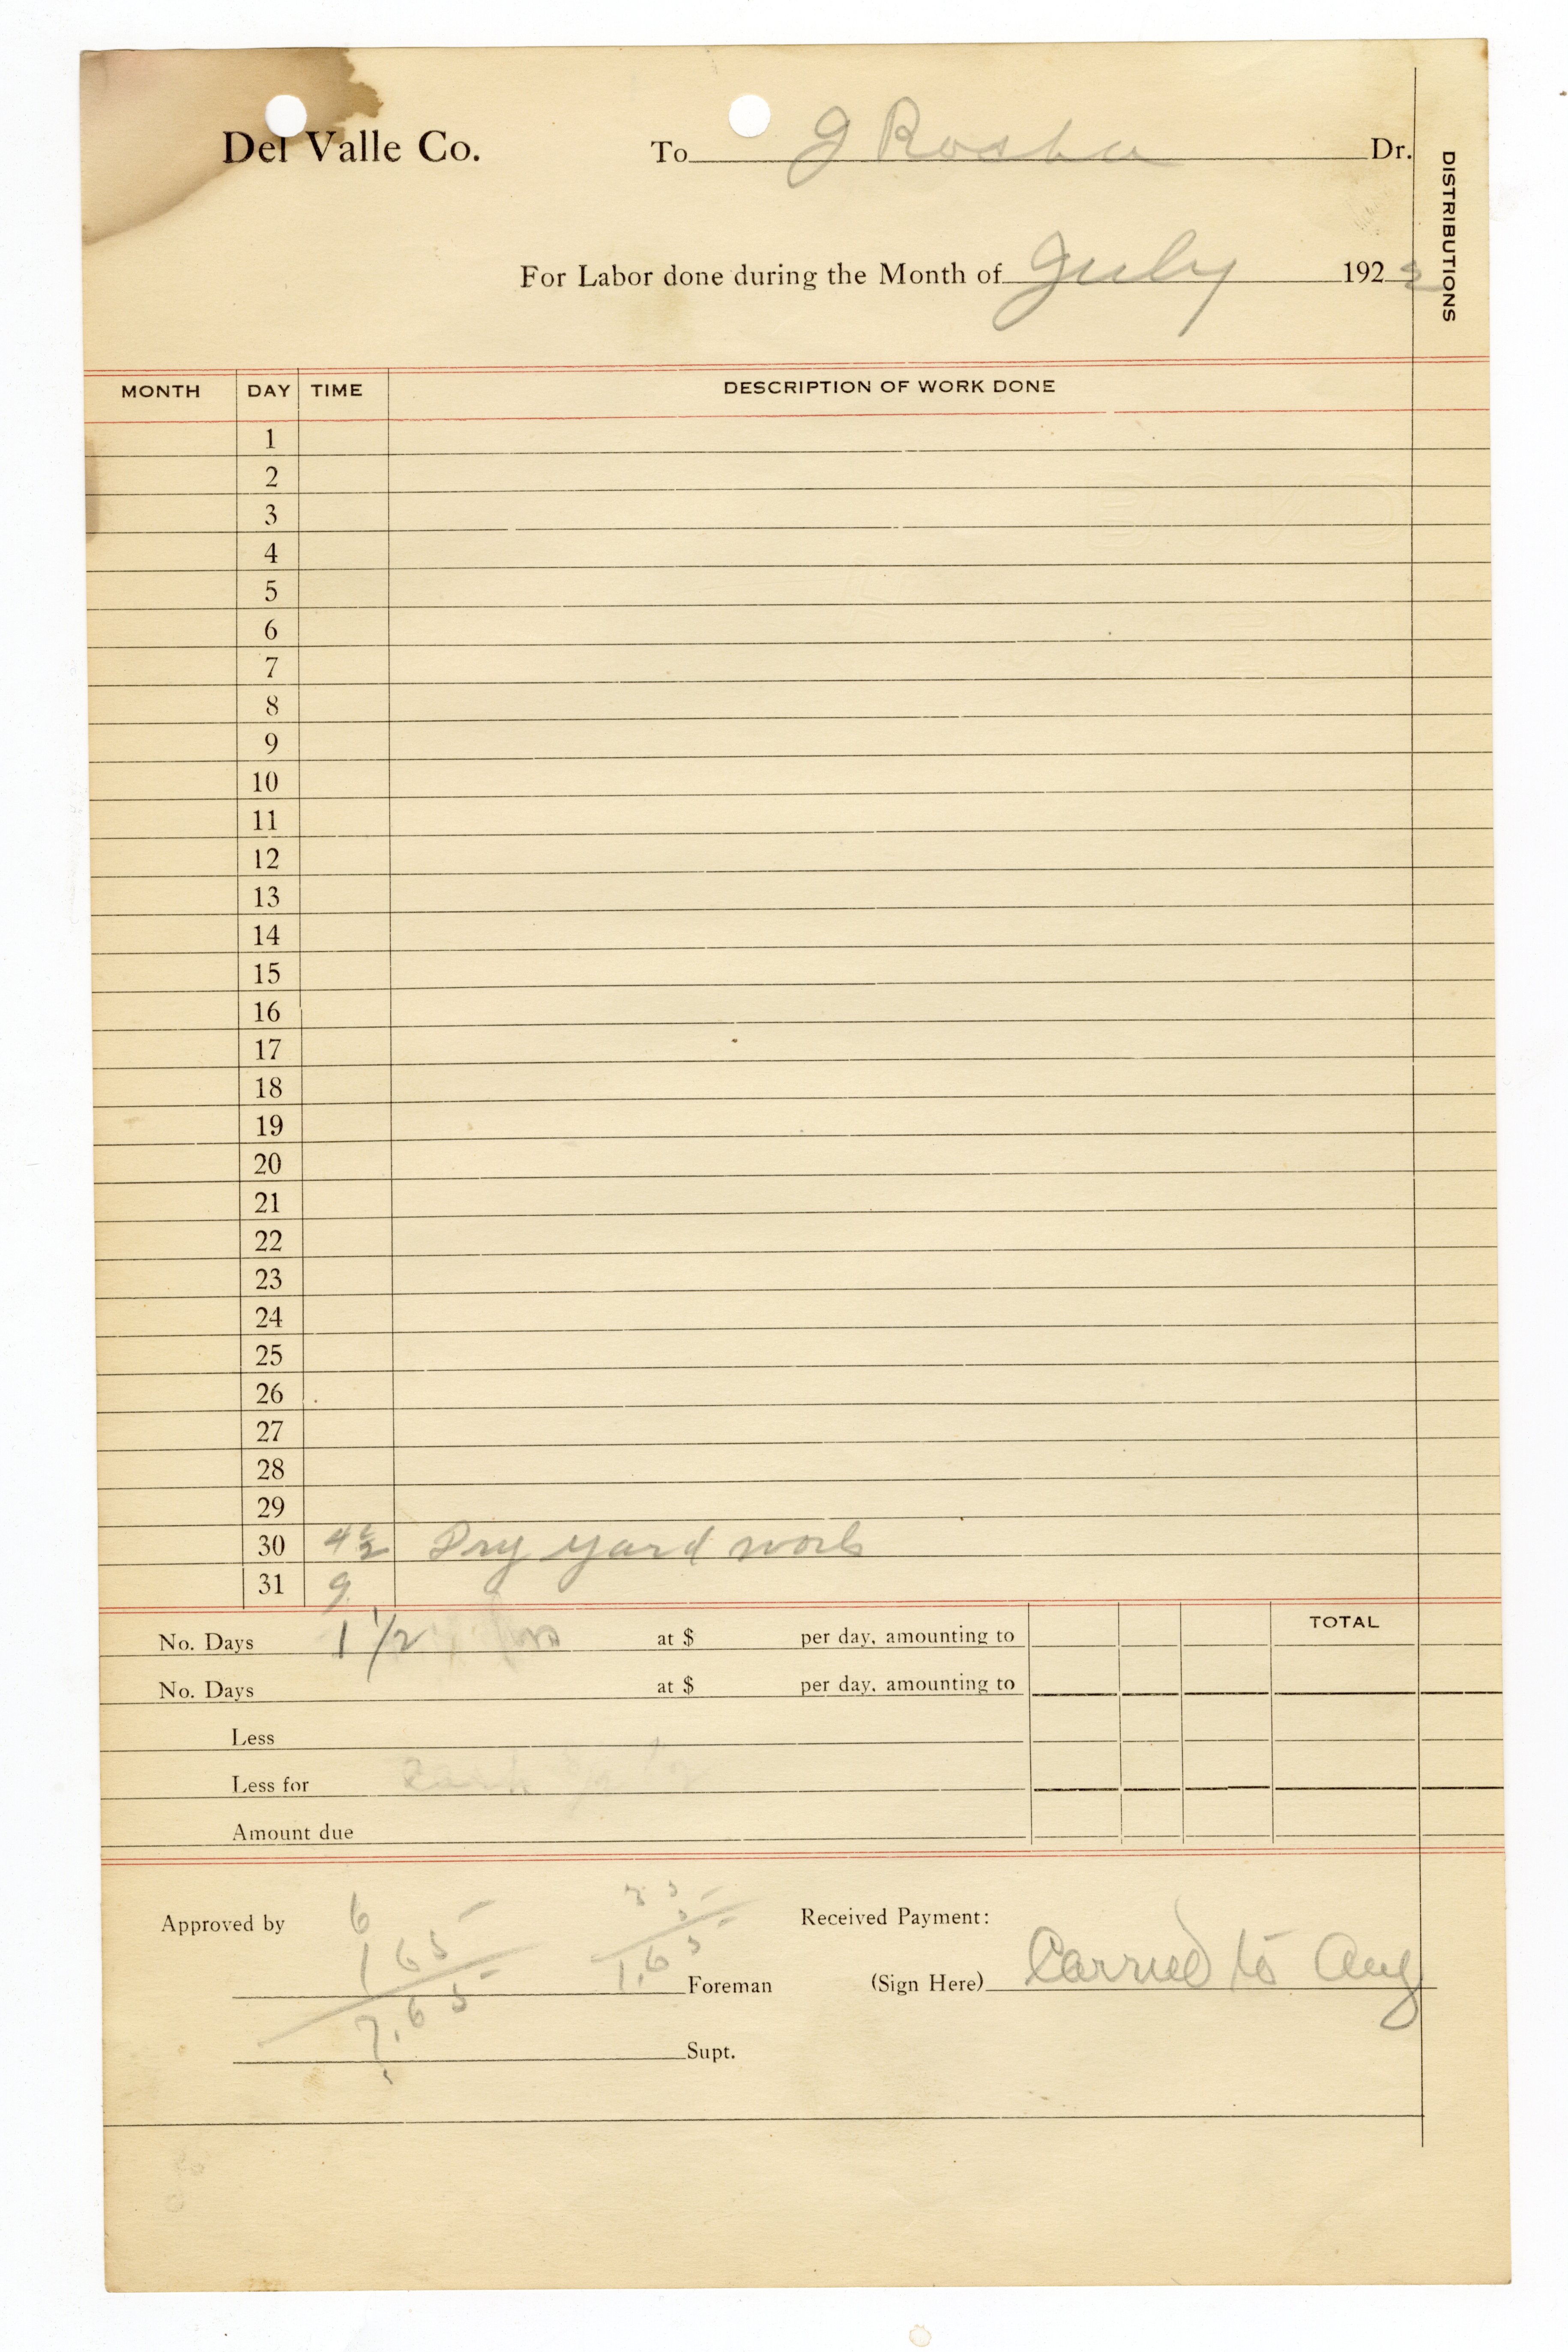 Del Valle Co. To J Rosha Dr.
DISTRIBUTIONS
For Labor done during the Month of July 192
MONTH DAY TIME DESCRIPTION OF WORK DONE
1
2
3
4
5
6
7
8
9
10
11
12
13
14
15
16
17
18
19
20
21
22
23
24
25
26
27
28
29
30 4½ Dry yard work
31 9
TOTAL
No. Days 1 1/2 at $ per day, amounting to
No. Days at $ per day, amounting to
Less
Less for Cash
Amount due
Approved by 6 Received Payment:
1 65
1.65 Foreman (Sign Here) Carried to Aug
7.65
Supt.